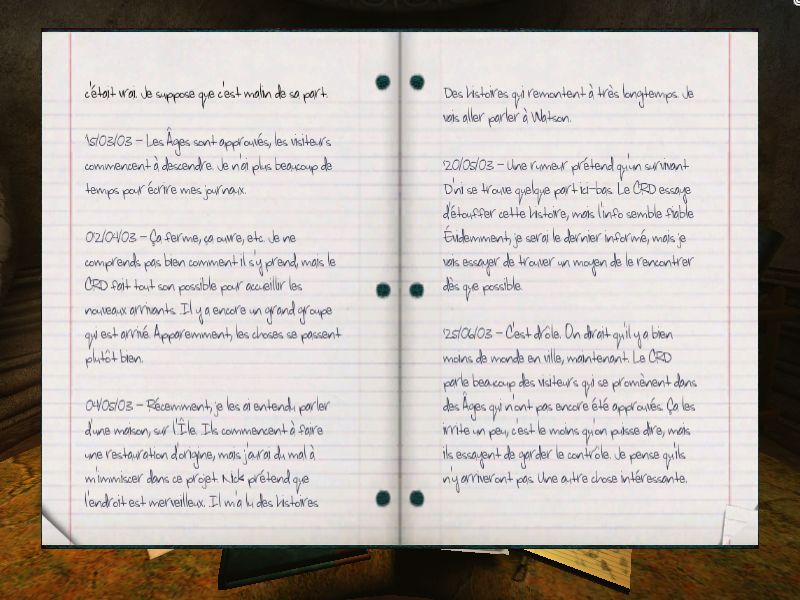 c'était vrai. Je suppose que c'est malin de sa part.
15/03/03 – Les Âges sont approuvés, les visiteurs
commencent à descendre. Je n'ai plus beaucoup de
temps pour écrire mes journaux.
02/04/03 – Ça ferme, ça ouvre, etc. Je ne
comprends pas bien comment il s'y prend, mais le
CRD fait tout son possible pour accueillir les
nouveaux arrivants. Il y a encore un grand groupe
qui est arrivé. Apparemment, les choses se passent
plutôt bien.
04/05/03 – Récemment, je les ai entendu parler
d'une maison, sur l'Île. Ils commencent à faire
une restauration d'origine, mais j'aurai du mal à
m'immiscer dans ce projet. Nick prétend que
l'endroit est merveilleux. Il m'a lu des histoires
Des histoires qui remontent à très longtemps. Je
vais aller parler à Watson.
20/05/03 – Une rumeur prétend qu'un survivant
D'ni se trouve quelque part ici-bas. Le CRD essaye
d'étouffer cette histoire, mais l'info semble fiable
Évidemment, je serai le dernier informé, mais je
vais essayer de trouver un moyen de le rencontrer
dès que possible.
25/06/03 – C'est drôle. On dirait qu'il y a bien
moins de monde en ville, maintenant. Le CRD
parle beaucoup des visiteurs qui se promènent dans
des Âges qui n'ont pas encore été approuvés. Ça les
irrite un peu, c'est le moins qu'on puisse dire, mais
ils essayent de garder le contrôle. Je pense qu'ils
n'y arriveront pas. Une autre chose intéressante.